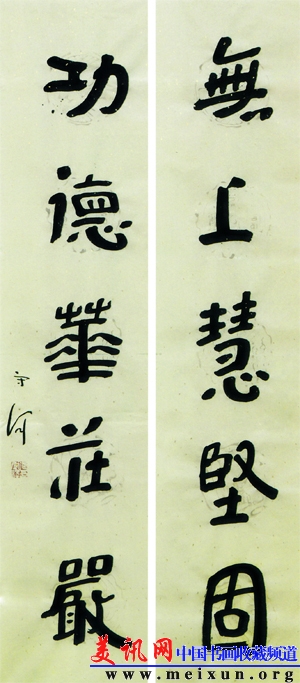 無上慧堅固
功德華莊嚴
美讯网 中国书画收藏频道
www.meixun.org